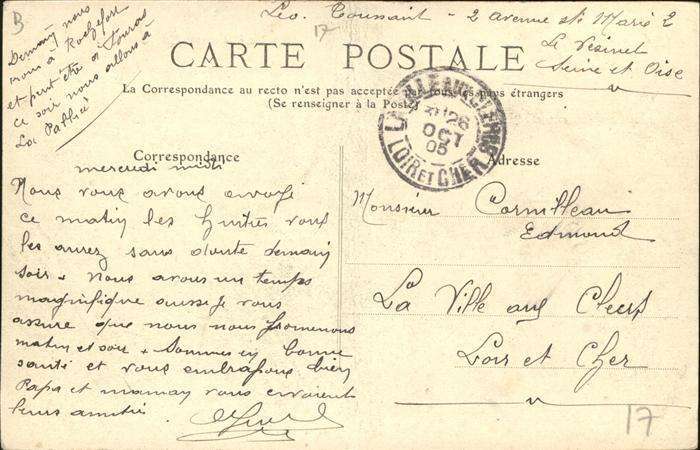 B
Leo. Toussaint - 2 avenue Ste Marie 2
Le Vésinet
Seine et Oise
17
Demain nous
irons à Rochefort
et peut être à Fouras
ce soir nous allons à
La Pallice
CARTE POSTALE
La Correspondance au recto n'est pas acceptée par tous les pays étrangers
(Se renseigner à la Poste)
LA VILLE AUX CLERCS
26
OCT
05
LOIR ET CHER
Correspondance
Adresse
mercredi midi
Nous vous avons envoyé
ce matin les huitres vous
les aurez sans doute demain
soir. Nous avons un temps
magnifique aussi je vous
assure que nous nous promenons
matin et soir. Sommes en bonne
santé et vous embrassons bien
Papa et maman vous envoient
leurs amitiés
Monsieur Cornilleau
Edmond
La Ville aux Clercs
Loir et Cher
17